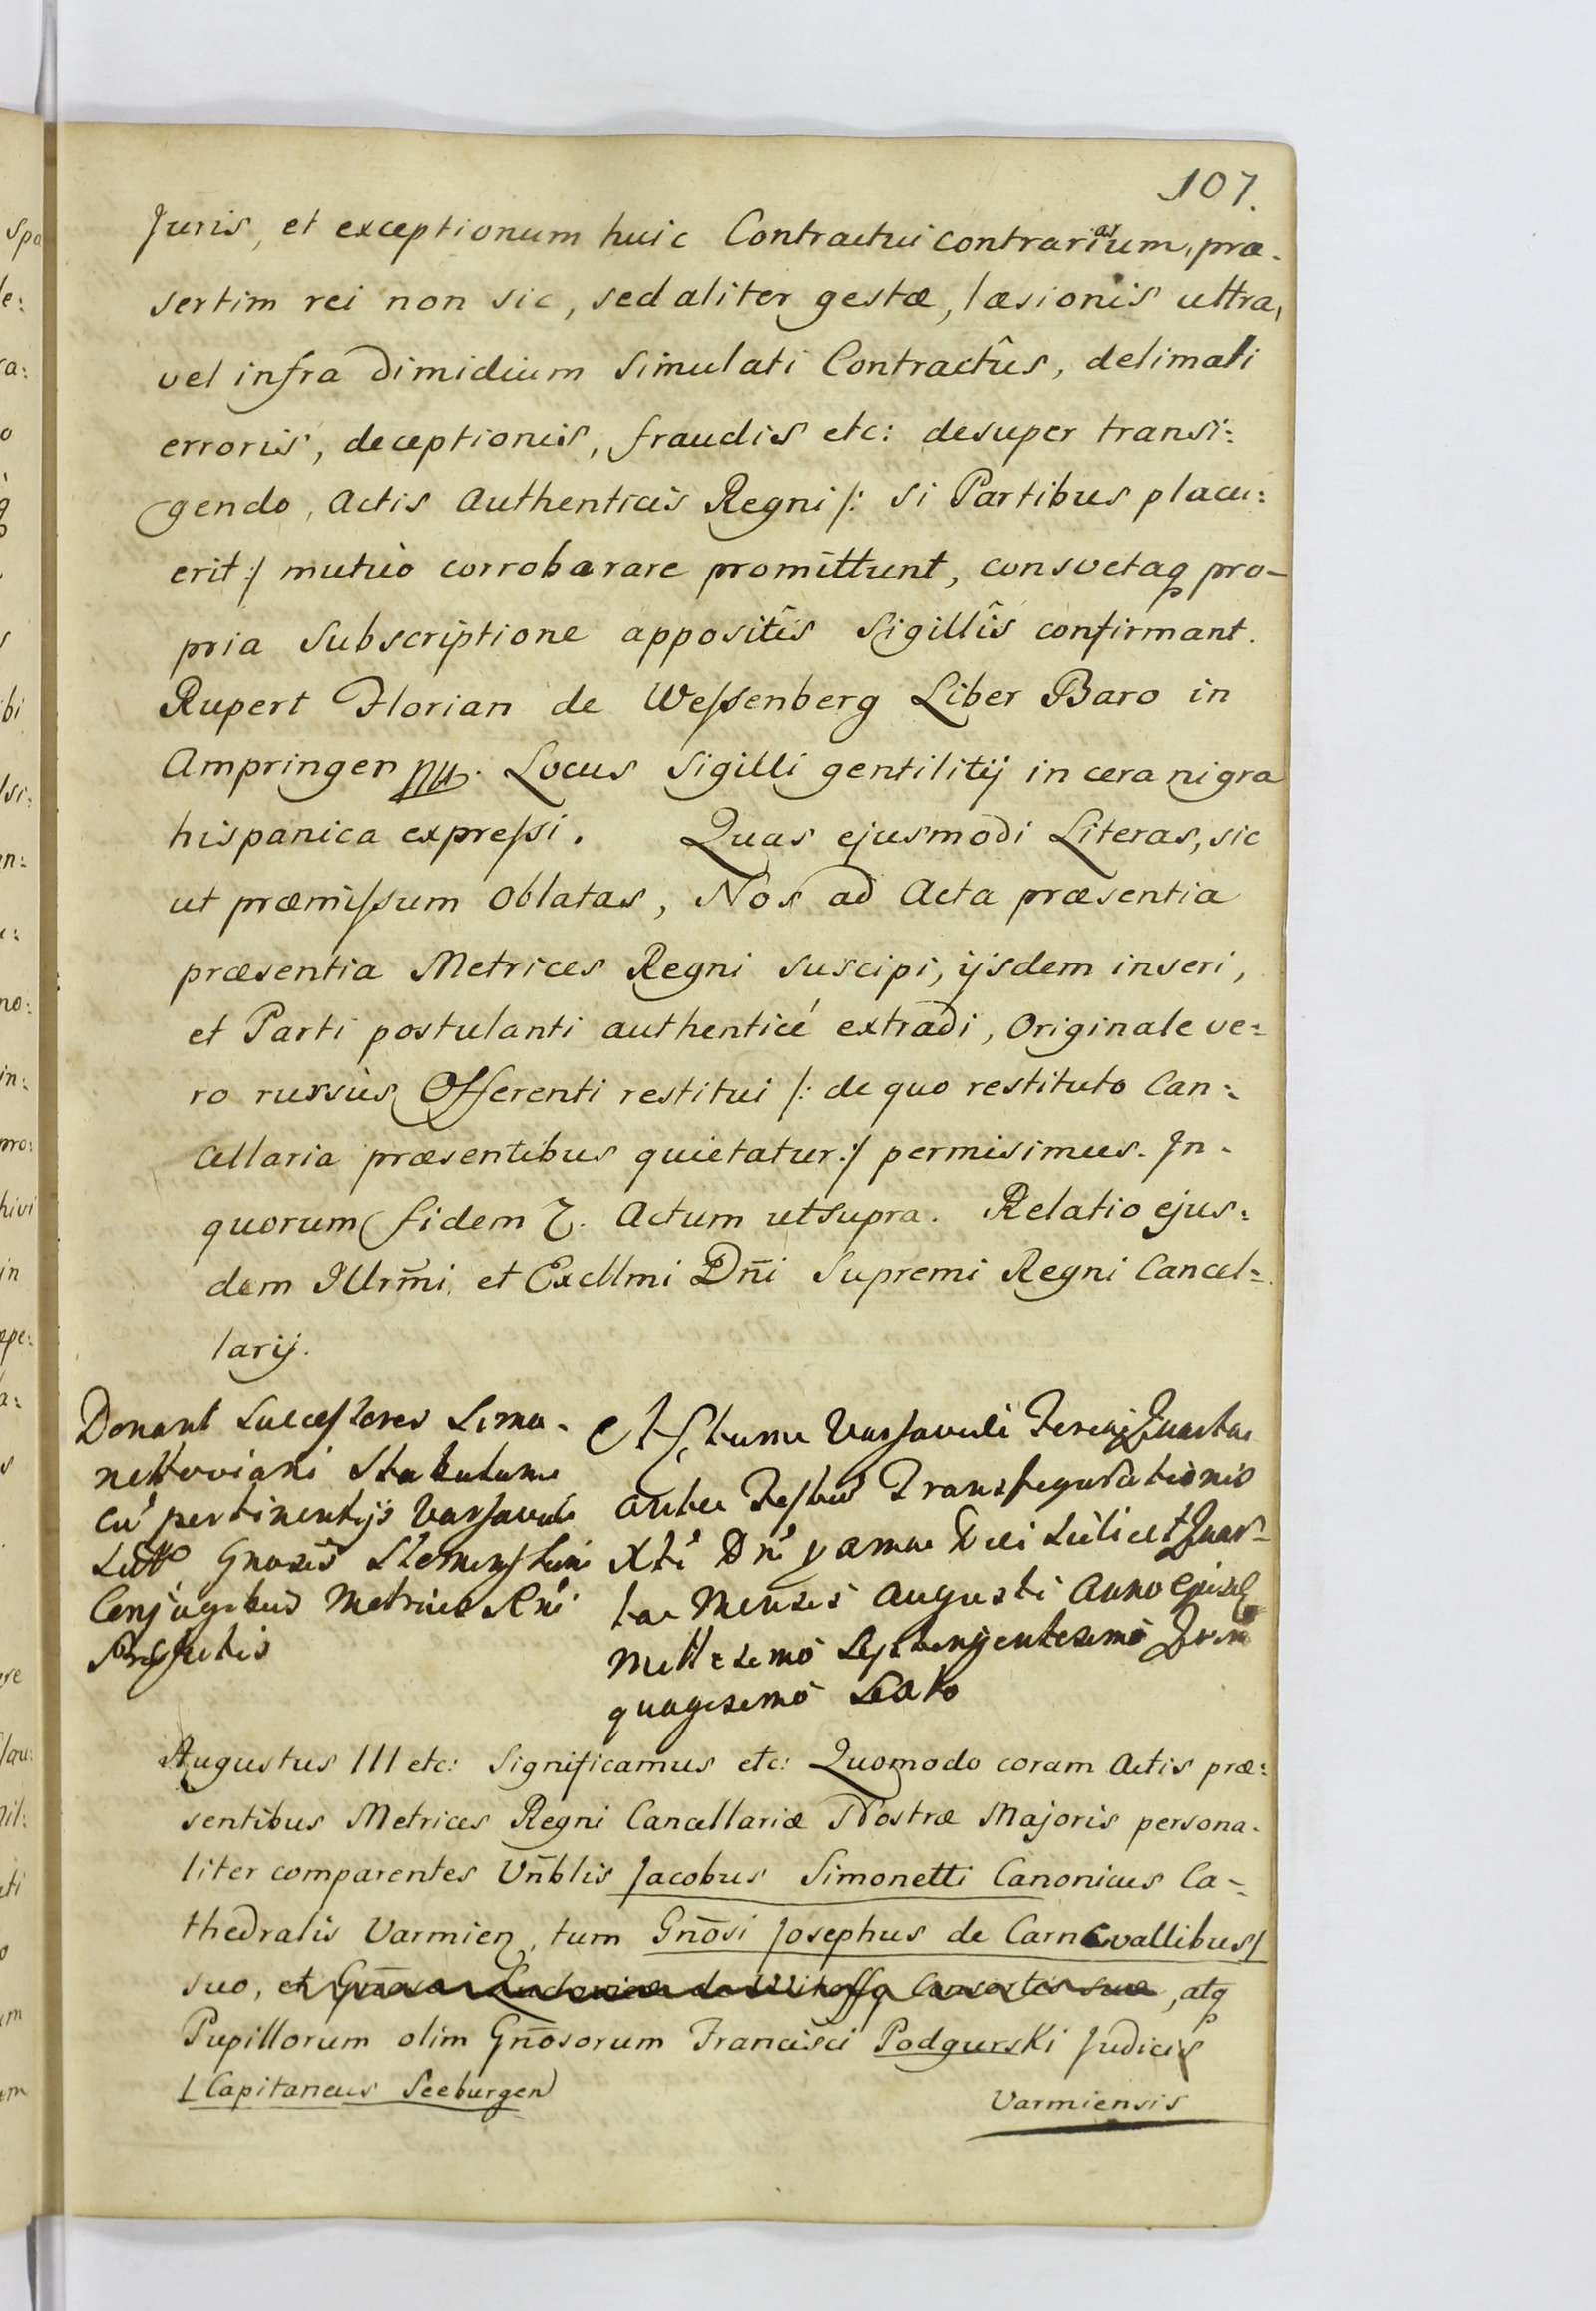 107.
Juris, et exceptionum huic Contractui contrariarum, præ-
sertim rei non sic, sed aliter gestæ, læsionis ultra,
vel infra dimidium simulati Contractûs, delimati
erroris, deceptionis, fraudis etc: desuper transi:
gendo, Actis Authenticis Regni /: si Partibus placu:
erit :/ mutuò corroborare promittunt, consvetaq pro-
pria Subscriptione appositîs Sigillîs confirmant.
Rupert Florian de Wessenberg Liber Baro in
Ampringen mp. Locus Sigilli gentilitij in cera nigra
hispanica expressi. Quas ejusmodi Literas, sic
ut præmissum oblatas, Nos ad Acta præsentia
præsentia Metrices Regni suscipi, ijsdem inseri,
et Parti postulanti authenticé extradi, Originale ve:
ro rursùs Offerenti restitui /: de quo restituto Can:
cellaria præsentibus quietatur :/ permisimus. In-
quorum fidem Actum ut supra. Relatio ejus:
dem Illrm̃i et Excllmi Dñi Supremi Regni Cancel:
larij.
Donant Successores Simo-
nettoviani
cũ pertinentijs Varsaviæ
Gnosis
Conjugibus Metrices Rñi
Actum Varsaviæ Feria Quarta
ante Festum Transfigurationis
Xti Dñi Die scilicet Quar-
ta Mensis Augusti Anno
Millesimo Septingentesimo Quin
quagesimo Sexto
Augustus III etc: Significamus etc: Quomodo coram Actis præ:
sentibus Metrices Regni Cancellariæ Nostræ Majoris persona-
liter comparentes Vñblis Jacobus Simonetti Canonicus Ca-
thedralis Varmien, tum Gñosi Josephus de Carnevallibus
suo, et , atq
Pupillorum olim Gñosorum Francisci Podgurski Judicis
Capitaneus Seeburgen
Varmiensis